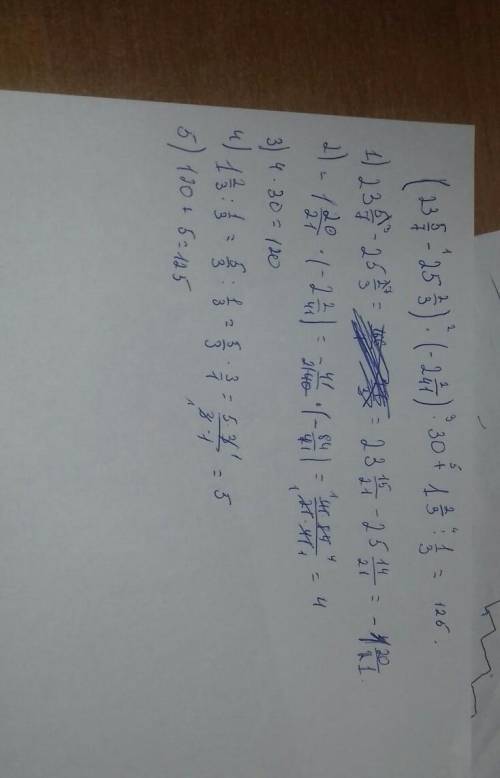 (23 5/7 - 25 2/3) · (-2 2/41) · 30 + 1 2/3 : 1/3 = 125.
1) 23 5/7 - 25 2/3 = = 23 15/21 - 25 14/21 = - 1 20/21.
2) = 1 20/21 · (-2 2/41) = -41/21 · (-84/41) = 41·84/21·41 = 4
3) 4 · 30 = 120
4) 1 2/3 : 1/3 = 5/3 : 1/3 = 5/3 · 3/1 = 5·3/3·1 = 5
5) 120 + 5 = 125